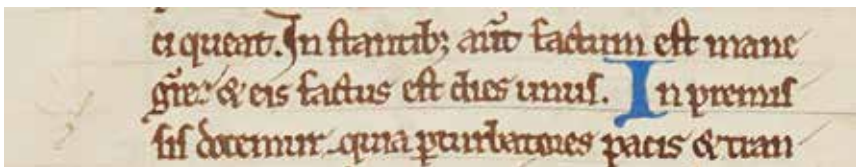 ci queat. In stantib; aut̄ factum est mane
gr̄e: & eis factus est dies unus. In premis
sis docemur quia ꝑturbatores pacis & tran